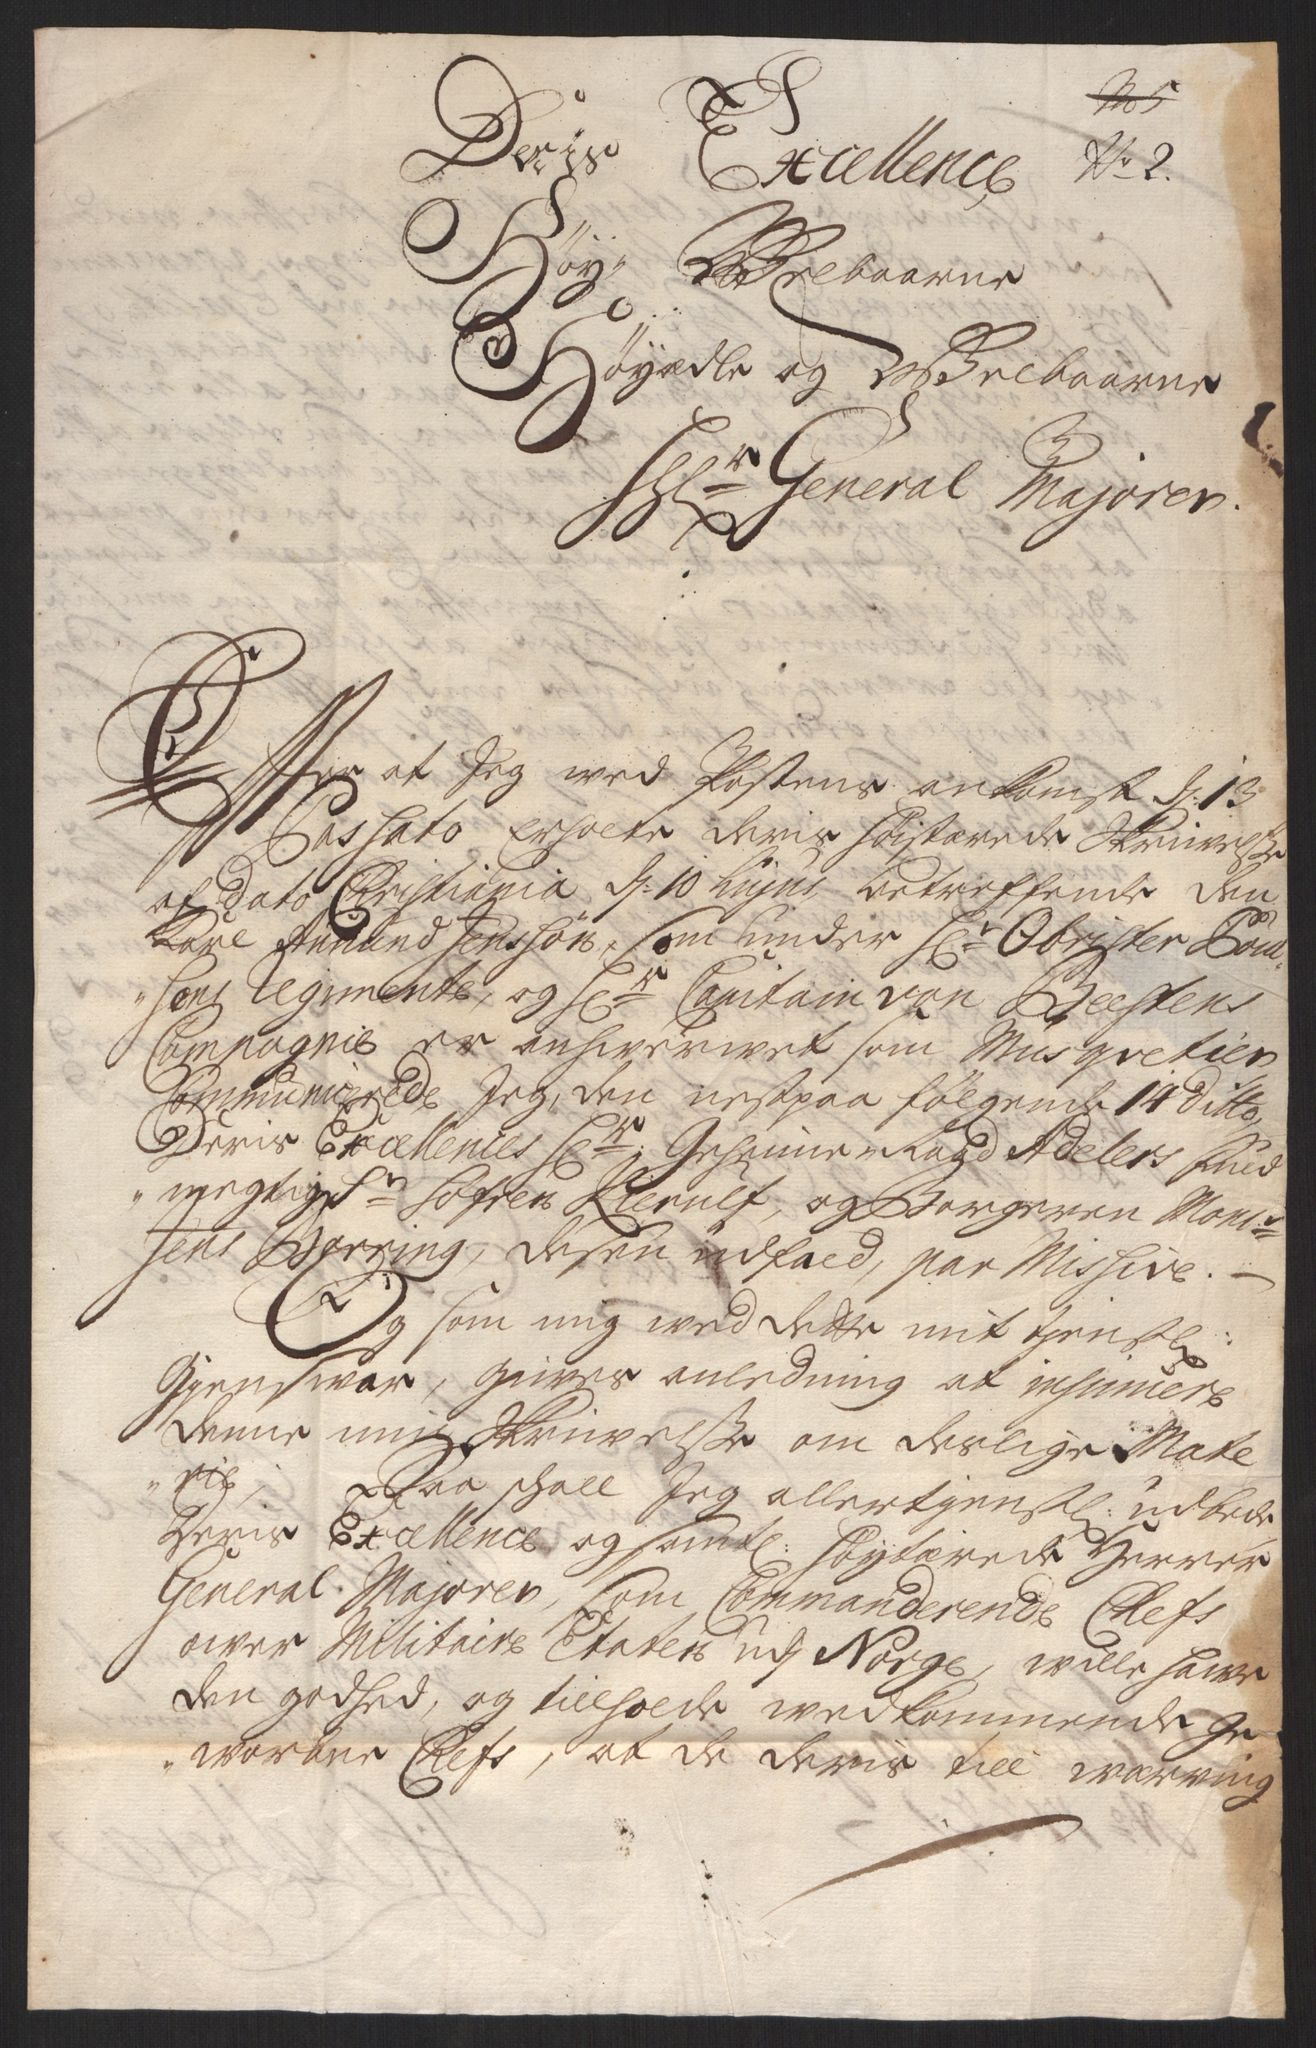 No 5
Deris Excellence
No 2.
Høy Welbaarne
Høyædle og Welbaarne
Hr General Majoren.
Efter at Jeg med Postens ankomst d: 13
Passato erholte deris høistærede Skrivelsse
af Dato Christiania d: 10 hujus betreffende den
Karl Amund Jenssøn, som under Hr Obrister
"sens Regimente, og Hr Capitain von Beestens
Compagnie er anhverwet som Musqvetier
Communicerede Jeg, den nestpaa følgende 14 Ditto,
Deris Excellences Hr Geheime Raad Adelers fuld
"megtig Hr Søfren Kierulf, og Borgeren Monsr
Jens Borring, desen udfald, par Missive. —
Og som mig ved dette mit tjenstl:
Gjenswar, gives anledning at insinuere
denne min Skrivelsse om deslige Mate
"rie, Saa schall Jeg allertjenstl: udbede
Deris Excellence og samtl: høytærede Herrer
General Majoren, som Commanderende Chefs
over Militaire Etaten udj Norge, wille hawe
den godhed, og tillholde wedkommende Ge
"worbne Chefs, at de deris till werwing